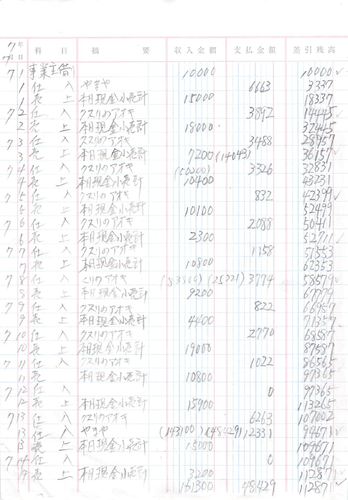 7年 科目 摘要 収入金額 支払金額 差引残高
7 1 事業主借 10000 10000 ✓
1 仕入 ヤオヤ 6663 3337
1 売上 本日現金小売計 15000 18337
7 2 仕入 クスリのアオキ 3892 14445 ✓
2 売上 本日現金小売計 18000 32445
7 3 仕入 クスリのアオキ 3488 28957
3 売上 本日現金小売計 7200 (14043) 36157 ✓
7 4 仕入 クスリのアオキ (50200) 3326 32831
4 売上 本日現金小売計 10400 43231
7 5 仕入 クスリのアオキ 832 42399 ✓
5 売上 本日現金小売計 10100 52499
7 6 仕入 クスリのアオキ 2088 50411
6 売上 本日現金小売計 2300 52711 ✓
7 7 仕入 クスリのアオキ 1158 51553
7 売上 本日現金小売計 10800 62353
7 8 仕入 クスリのアオキ 3774 58579 ✓
8 売上 本日現金小売計 9200 67779
7 9 仕入 クスリのアオキ 822 66957
9 売上 本日現金小売計 4400 71357
7 10 仕入 クスリのアオキ 2770 68587
10 売上 本日現金小売計 19000 87587
7 11 仕入 クスリのアオキ 1022 86565
11 売上 10800 97365
7 12 仕入 0 97365
12 売上 本日現金小売計 15900 113265
7 13 仕入 クスリのアオキ 6263 107002
13 仕入 ヤオヤ (143100) (48429) 12331 94671
13 売上 本日現金小売計 15000 109671
7 14 仕入 0 109671
14 売上 本日現金小売計 3200 112871
161300 48429 112871 ✓